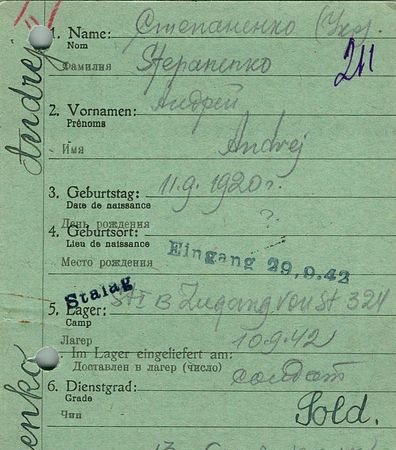 1. Name: Степаненко (Укр).
Nom
Фамилия Stepanenko
211
2. Vornamen: Андрей
Prénoms
Имя Andrej
3. Geburtstag: 11.9.1920г.
Date de naissance
День рождения
4. Geburtsort: ?
Lieu de naissance
Место рождения
Eingang 29.9.42
Stalag
St I B Zugang von St 321
5. Lager:
Camp
Лагерь 10.9.42
Im Lager eingeliefert am:
Доставлен в лагерь (число)
6. Dienstgrad: солдат
Grade
Чин Sold.
Andrej
enko